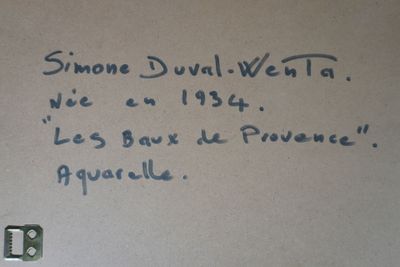 Simone Duval-Wenta.
Née en 1934.
"Les Baux de Provence".
Aquarelle.